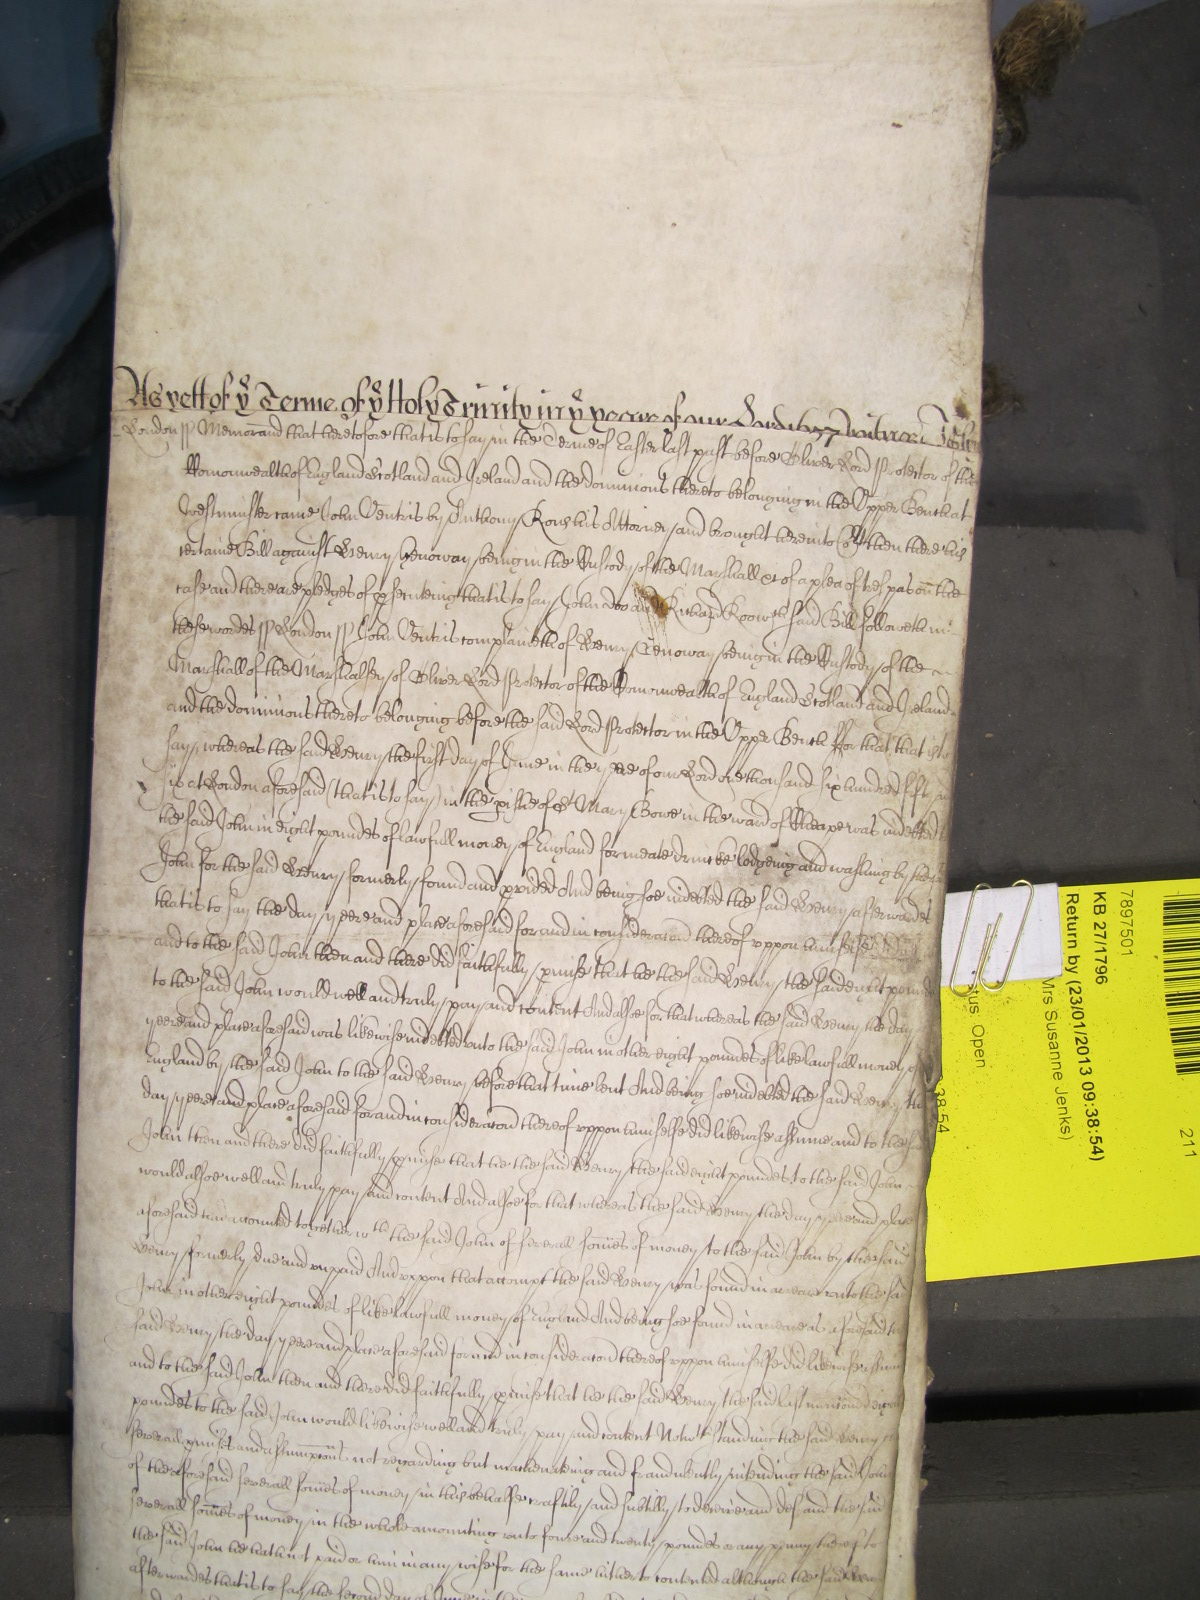 As yett of ye Terme of ye Holy Trinity in ye yeere of our Lord 1657 Witnes John
London ss Memorand that heretofore that is to say in the Terme of Easter last past before Oliver Lord Protector of the
Comonwealth of England Scotland and Ireland and the dominions thereto belonging in the Upper Bench at
Westminster came John Ventris by Anthony his Attorney and brought here into Court then there his
certaine Bill against Henry being in the Custody of the Marshall &c of a plea of trespas on the
case and there are pledges of prosecuting that is to say John Doo and Richard Roo wch said Bill followeth in
these wordes ss London ss John Ventris complaineth of Henry being in the Custody of the
Marshall of the Marshalsey of Oliver Lord Protector of the Comonwealth of England Scotland and Ireland
and the dominions thereto belonging before the said Lord Protector in the Upper Bench For that that is to
say whereas the said Henry the first day of June in the yeere of our Lord one thousand six hundred fifty
six at London aforesaid (that is to say) in the pishe of St Mary Bowe in the ward of Cheape was indebted to
the said John in eight poundes of lawfull money of England for meate drincke lodgeing and washing by the said
John for the said Henry formerly found and pvided And being soe indebted the said Henry afterwardes
that is to say the day yeere and place aforesaid for and in consideracon thereof uppon himselfe did
and to the said John then and there did faithfully pmise that he the said Henry the said eight poundes
to the said John would well and truly pay and content And alsoe for that whereas the said Henry the day
yeere and place aforesaid was likewise indebted unto the said John in other eight poundes of like lawfull money of
England by the said John to the said Henry before that time lent And being soe indebted the said Henry the
day yeere and place aforesaid for and in consideracon thereof uppon himselfe did likewise assume and to the said
John then and there did faithfully pmise that he the said Henry the said eight poundes to the said John
would alsoe well and truly pay and content And alsoe for that whereas the said Henry the day yeere and place
aforesaid had accounted together wth the said John of severall somes of money to the said John by the said
Henry formerly due and unpaid And uppon that accompt the said Henry was found in arreare unto the said
John in other eight poundes of like lawfull money of England And being soe found in arreare as aforesaid the
said Henry the day yeere and place aforesaid for and in consideracon thereof uppon himselfe did likewise assume
and to the said John then and there did faithfully pmise that he the said Henry the said last mencioned eight
poundes to the said John would likewise well and truly pay and content Notwthstanding the said Henry his
severall pmises and assumpcons not regarding but machinating and fraudulently intending the said John
of the aforesaid severall somes of money in this behalfe craftily and subtilly to deceive and defraud the said
severall somes of money in the whole amounting unto foure and twenty poundes or any penny thereof to
the said John he hath not paid or him in any wise for the same hitherto contented although the said Henry
afterwardes that is to say the second day of June in the
7897501
KB 27/1796
Return by (23/01/2013 09:38:54)
Mrs Susanne Jenks)
tus Open
38:54
211